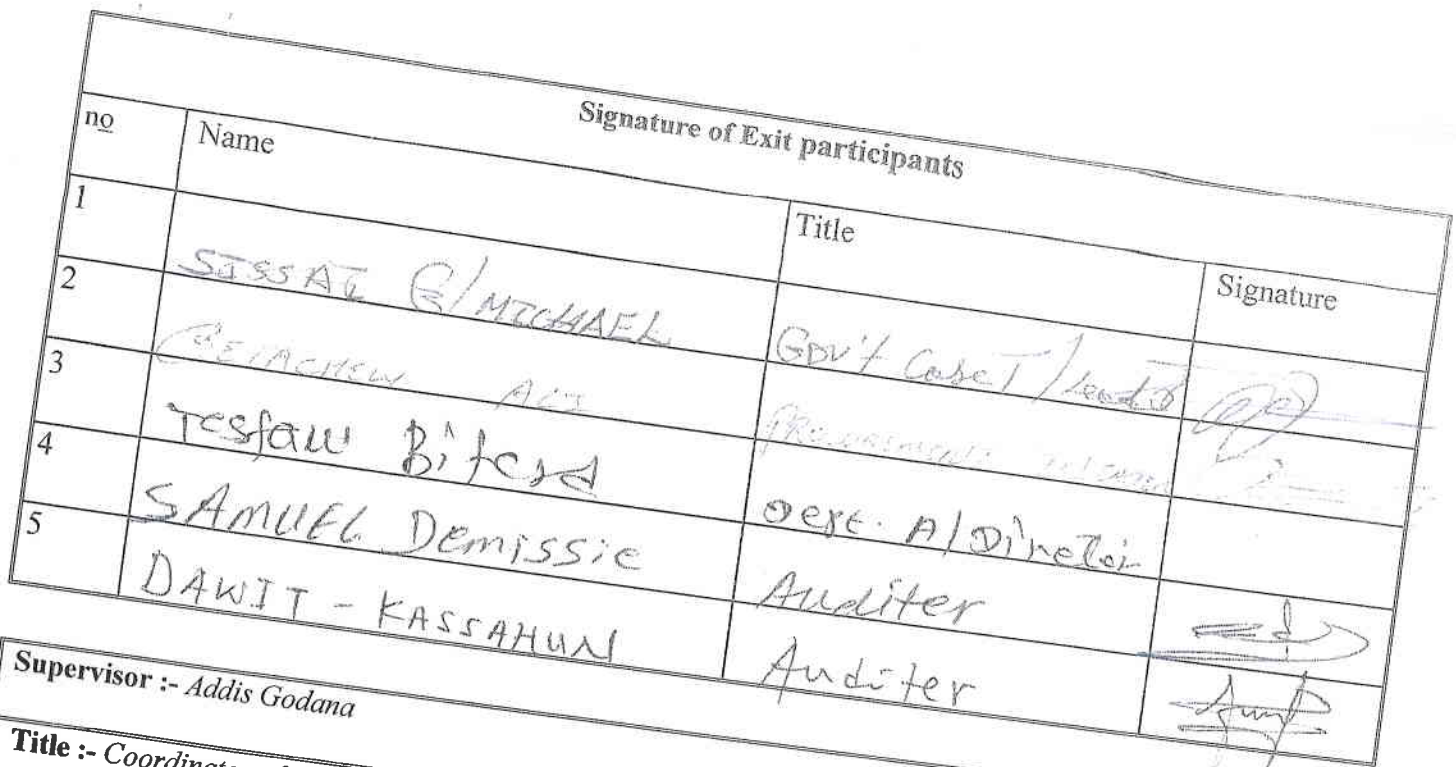 Signature of Exit participants
no Name Title Signature
1 SISSAI G/MICHAEL Gov't Case T/Leader
2 GETACHEW ALI
3 Tesfaw Biterd A/Director
4 SAMUEL Demissie Auditer
5 DAWIT - KASSAHUN Auditer
Supervisor :- Addis Godana
Title :- Coordinator